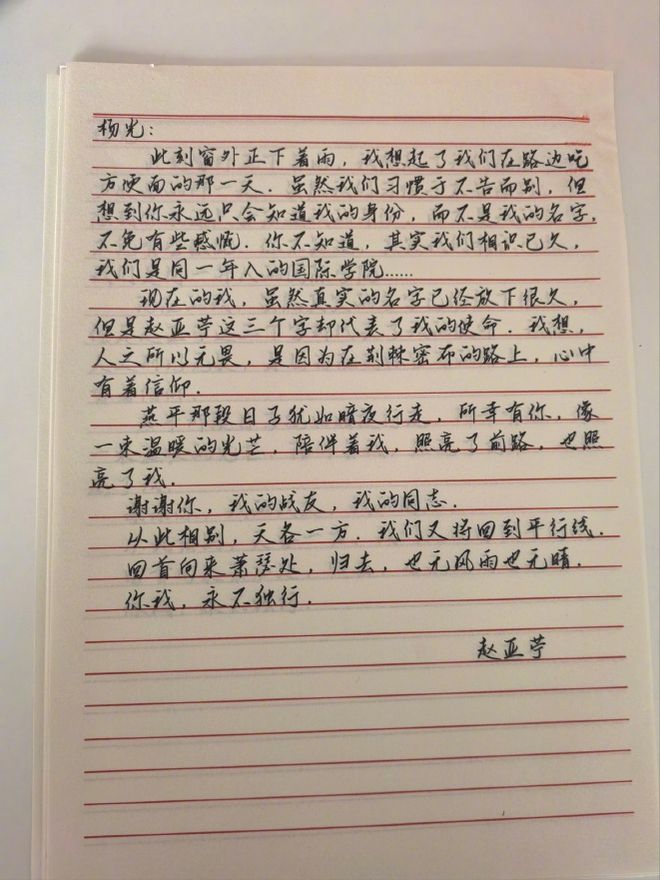 杨光：
此刻窗外正下着雨，我想起了我们在路边吃
方便面的那一天．虽然我们习惯于不告而别，但
想到你永远只会知道我的身份，而不是我的名字，
不免有些感慨．你不知道，其实我们相识已久，
我们是同一年入的国际学院……
现在的我，虽然真实的名字已经放下很久，
但是赵亚苧这三个字却代表了我的使命．我想，
人之所以无畏，是因为在荆棘密布的路上，心中
有着信仰．
燕平那段日子犹如暗夜行走，所幸有你，像
一束温暖的光芒，陪伴着我，照亮了前路，也照
亮了我．
谢谢你，我的战友，我的同志．
以此相别，天各一方．我们又将回到平行线．
回首向来萧瑟处，归去，也无风雨也无晴．
你我，永不独行．
赵亚苧